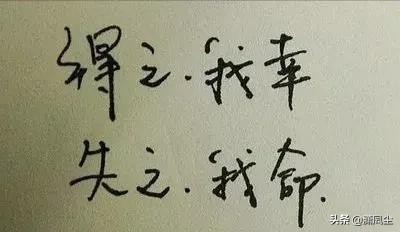 得之.我幸
失之.我命.
头条@潇凤尘